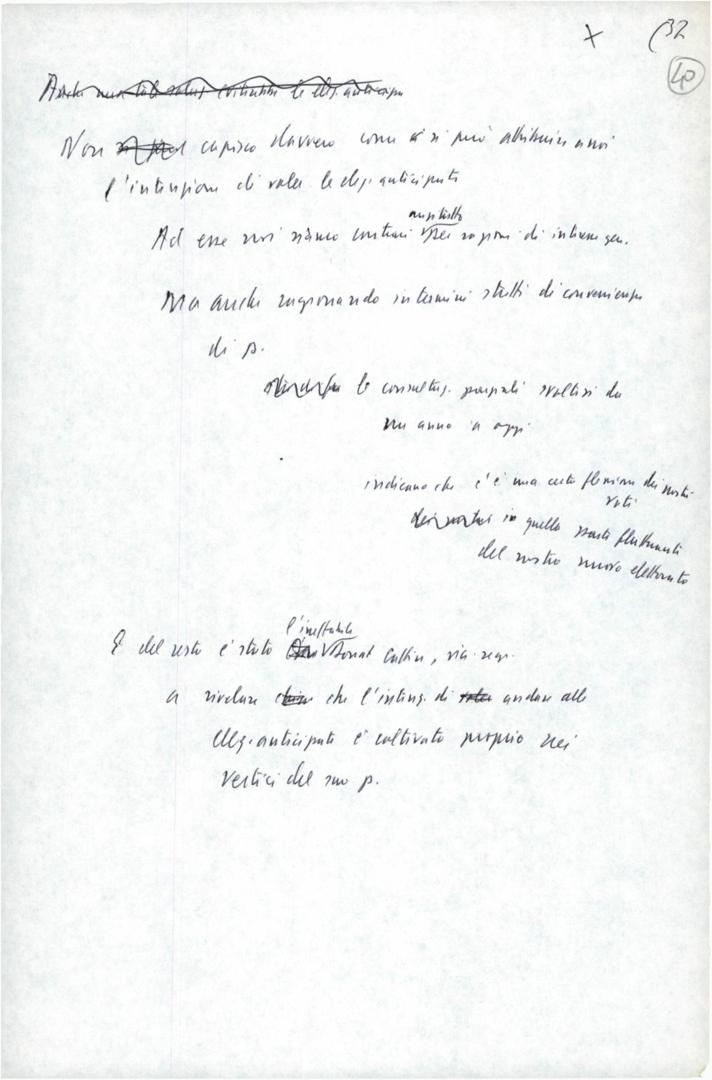 X
(32
40
Non capisco davvero come ci si può attribuire a noi
l'intenzione di voler le elez. anticipate
Ad esse noi siamo contrari anzitutto per ragioni di interesse gen.
Ma anche ragionando in termini stretti di convenienza
di p.
le consultaz. parziali svoltesi da
un anno a oggi
indicano che c'è una certa flessione dei nostri
voti
in quelle parti fluttuanti
del nostro nuovo elettorato
E del resto è stato l'ineffabile Donat Cattin, via. segr.
a rivelare che l'intenz. di andare alle
elez. anticipate è coltivata proprio nei
vertici del suo p.